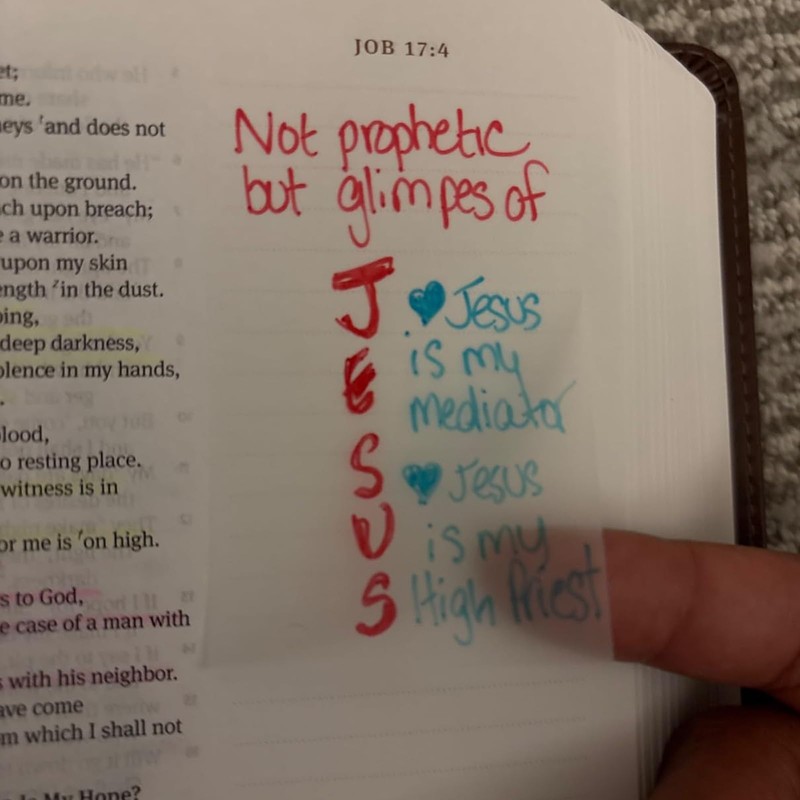 JOB 17:4
et;
me.
eys ʳand does not
on the ground.
ch upon breach;
e a warrior.
upon my skin
ength ᶻin the dust.
ping,
deep darkness,
olence in my hands,
.
lood,
o resting place.
witness is in
or me is ʳon high.
s to God,
e case of a man with
s with his neighbor.
ave come
m which I shall not
Is My Hope?
Not prophetic
but glimpses of
J ♥ Jesus
is my
E mediator
S ♥ Jesus
U is my
S High Priest